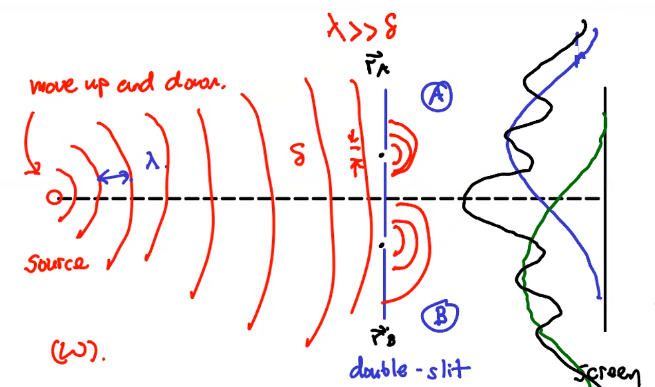 λ>>δ
r⃗A
move up and down.
A
λ.
δ
Source
B
r⃗B
(ω).
double-slit
Screen